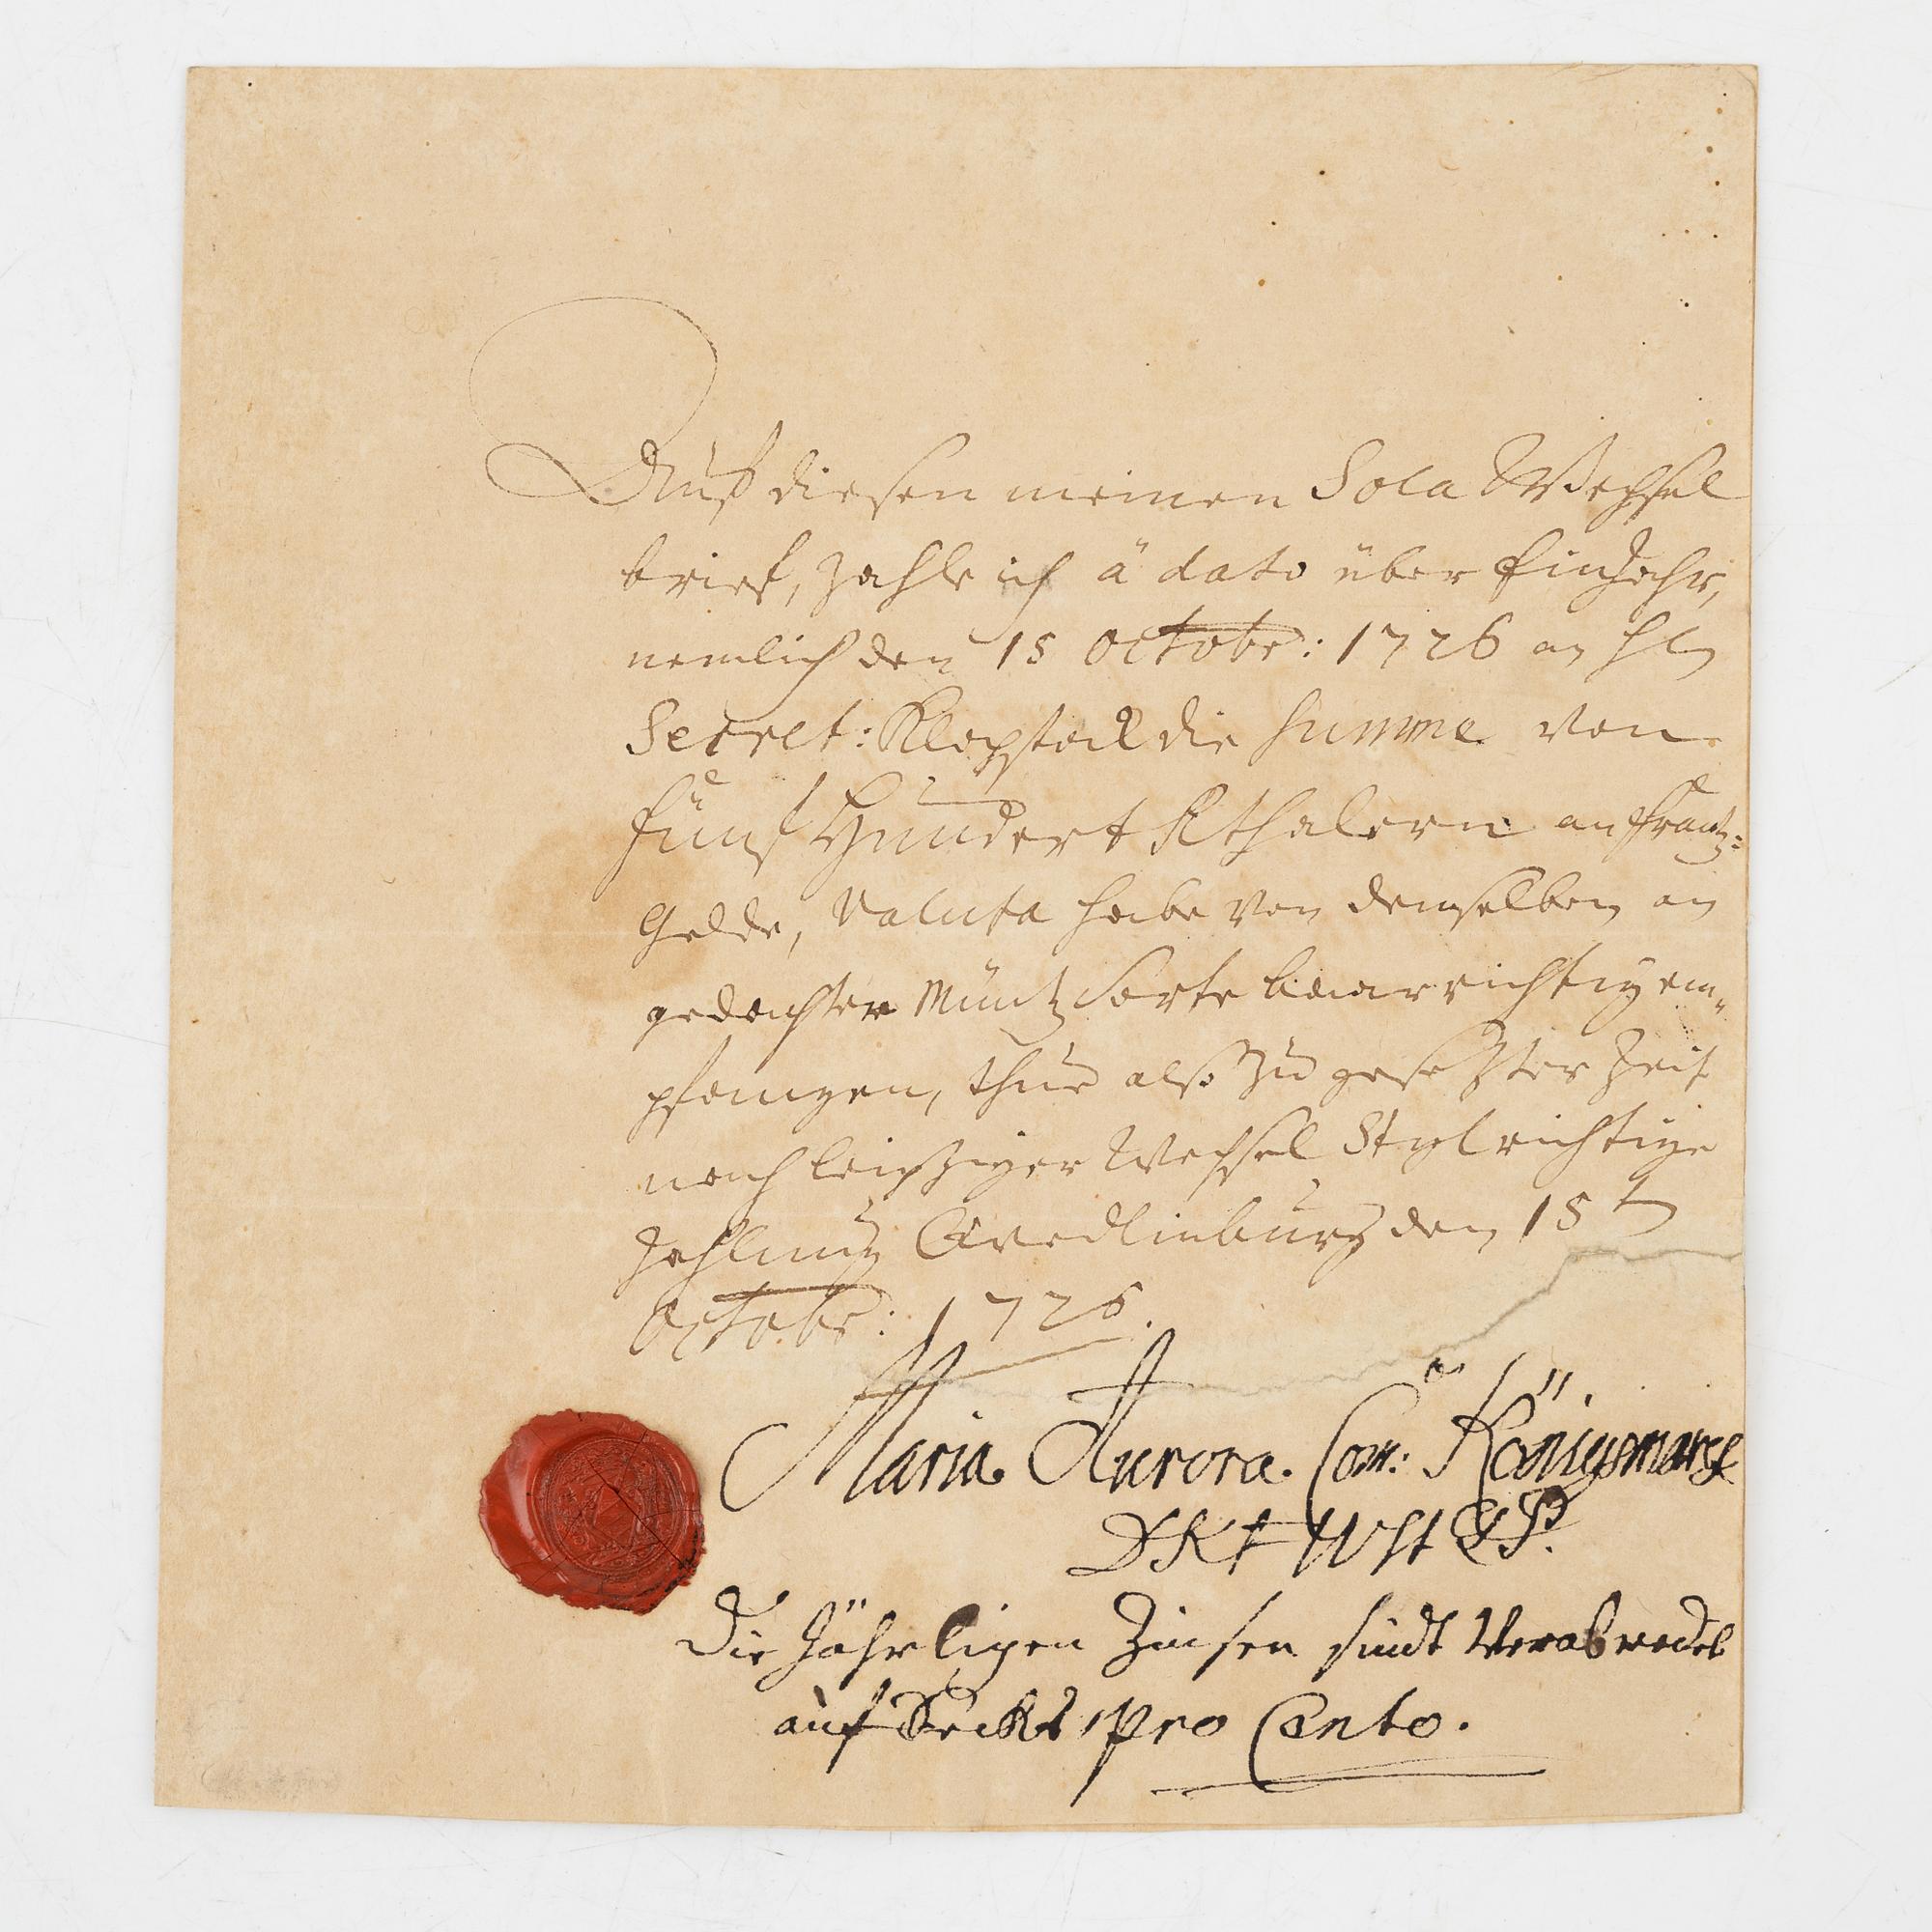 Auff diesen meinen Sola Wechsel
brieff, zahle ich â dato über Ein Jahr,
nemlich den 15 Octobr: 1726 an H
Secret: Klopstock die Summe von
fünff Hundert Rthalern an Frantz=
Gelde, Valuta habe von demselben an
gedachter Müntz Sorte baar richtig em=
pfangen, thue also zu gesetzter Zeit
nach Leipziger Wechsel Styl richtige
Zahlung Qvedlinburg den 15t
Octobr: 1725.
Maria Aurora. Com: Königsmarck
Die Jährligen Zinsen sindt Verabredet
auf Sechs pro Cento.